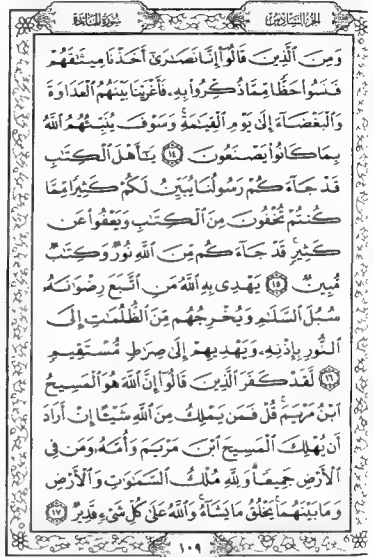 سُورَةُ المَائِدَةِ
الجُزْءُ السَّادِسُ
وَمِنَ ٱلَّذِينَ قَالُوٓا۟ إِنَّا نَصَٰرَىٰٓ أَخَذْنَا مِيثَٰقَهُمْ
فَنَسُوا۟ حَظًّا مِّمَّا ذُكِّرُوا۟ بِهِۦ فَأَغْرَيْنَا بَيْنَهُمُ ٱلْعَدَاوَةَ
وَٱلْبَغْضَآءَ إِلَىٰ يَوْمِ ٱلْقِيَٰمَةِ ۚ وَسَوْفَ يُنَبِّئُهُمُ ٱللَّهُ
بِمَا كَانُوا۟ يَصْنَعُونَ ١٤ يَٰٓأَهْلَ ٱلْكِتَٰبِ
قَدْ جَآءَكُمْ رَسُولُنَا يُبَيِّنُ لَكُمْ كَثِيرًا مِّمَّا
كُنتُمْ تُخْفُونَ مِنَ ٱلْكِتَٰبِ وَيَعْفُوا۟ عَن
كَثِيرٍ ۚ قَدْ جَآءَكُم مِّنَ ٱللَّهِ نُورٌ وَكِتَٰبٌ
مُّبِينٌ ١٥ يَهْدِى بِهِ ٱللَّهُ مَنِ ٱتَّبَعَ رِضْوَٰنَهُۥ
سُبُلَ ٱلسَّلَٰمِ وَيُخْرِجُهُم مِّنَ ٱلظُّلُمَٰتِ إِلَى
ٱلنُّورِ بِإِذْنِهِۦ وَيَهْدِيهِمْ إِلَىٰ صِرَٰطٍ مُّسْتَقِيمٍ
١٦ لَّقَدْ كَفَرَ ٱلَّذِينَ قَالُوٓا۟ إِنَّ ٱللَّهَ هُوَ ٱلْمَسِيحُ
ٱبْنُ مَرْيَمَ ۚ قُلْ فَمَن يَمْلِكُ مِنَ ٱللَّهِ شَيْـًٔا إِنْ أَرَادَ
أَن يُهْلِكَ ٱلْمَسِيحَ ٱبْنَ مَرْيَمَ وَأُمَّهُۥ وَمَن فِى
ٱلْأَرْضِ جَمِيعًا ۗ وَلِلَّهِ مُلْكُ ٱلسَّمَٰوَٰتِ وَٱلْأَرْضِ
وَمَا بَيْنَهُمَا ۚ يَخْلُقُ مَا يَشَآءُ ۚ وَٱللَّهُ عَلَىٰ كُلِّ شَىْءٍ قَدِيرٌ ١٧
١٠٩